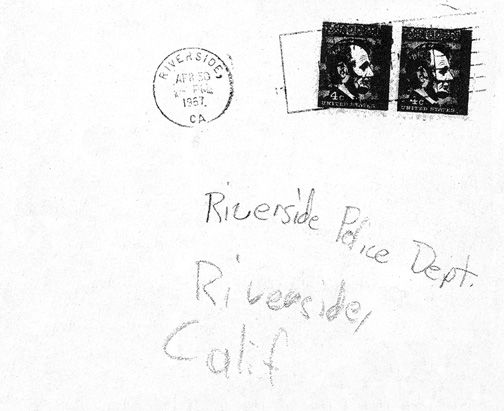 RIVERSIDE,
APR 30
PM
1967
CA
4c 4c
UNITED STATES UNITED STATES
Riverside Police Dept.
Riverside,
Calif